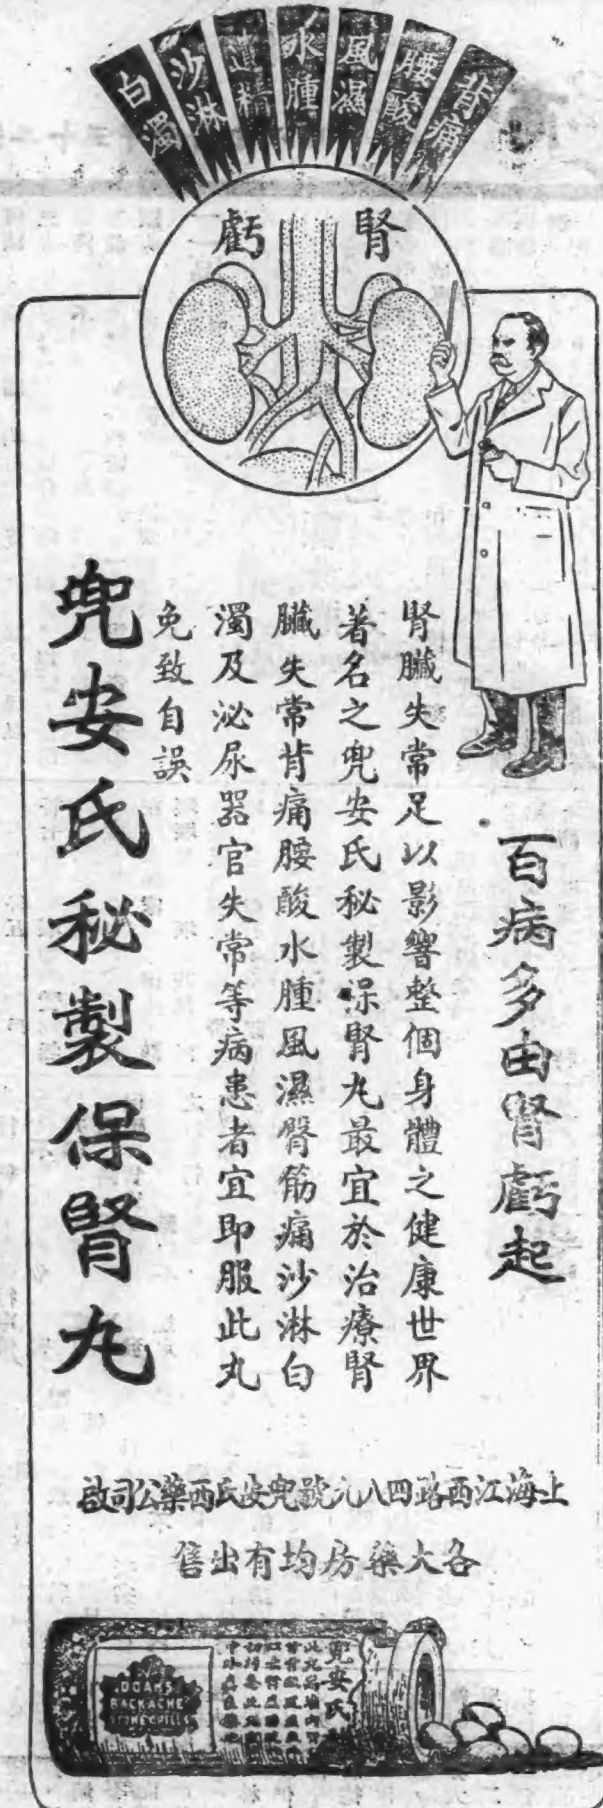 背痛
腰酸
風濕
水腫
遺精
沙淋
白濁
腎虧
百病多由腎虧起
腎臟失常足以影響整個身體之健康世界
著名之兜安氏秘製保腎丸最宜於治療腎
臟失常背痛腰酸水腫風濕臀筋痛沙淋白
濁及泌尿器官失常等病患者宜即服此丸
免致自誤
兜安氏秘製保腎丸
上海江西路四八九號兜安氏西藥公司啟
各大藥房均有出售
兜安氏
DOAN'S
BACKACHE
KIDNEY PILLS